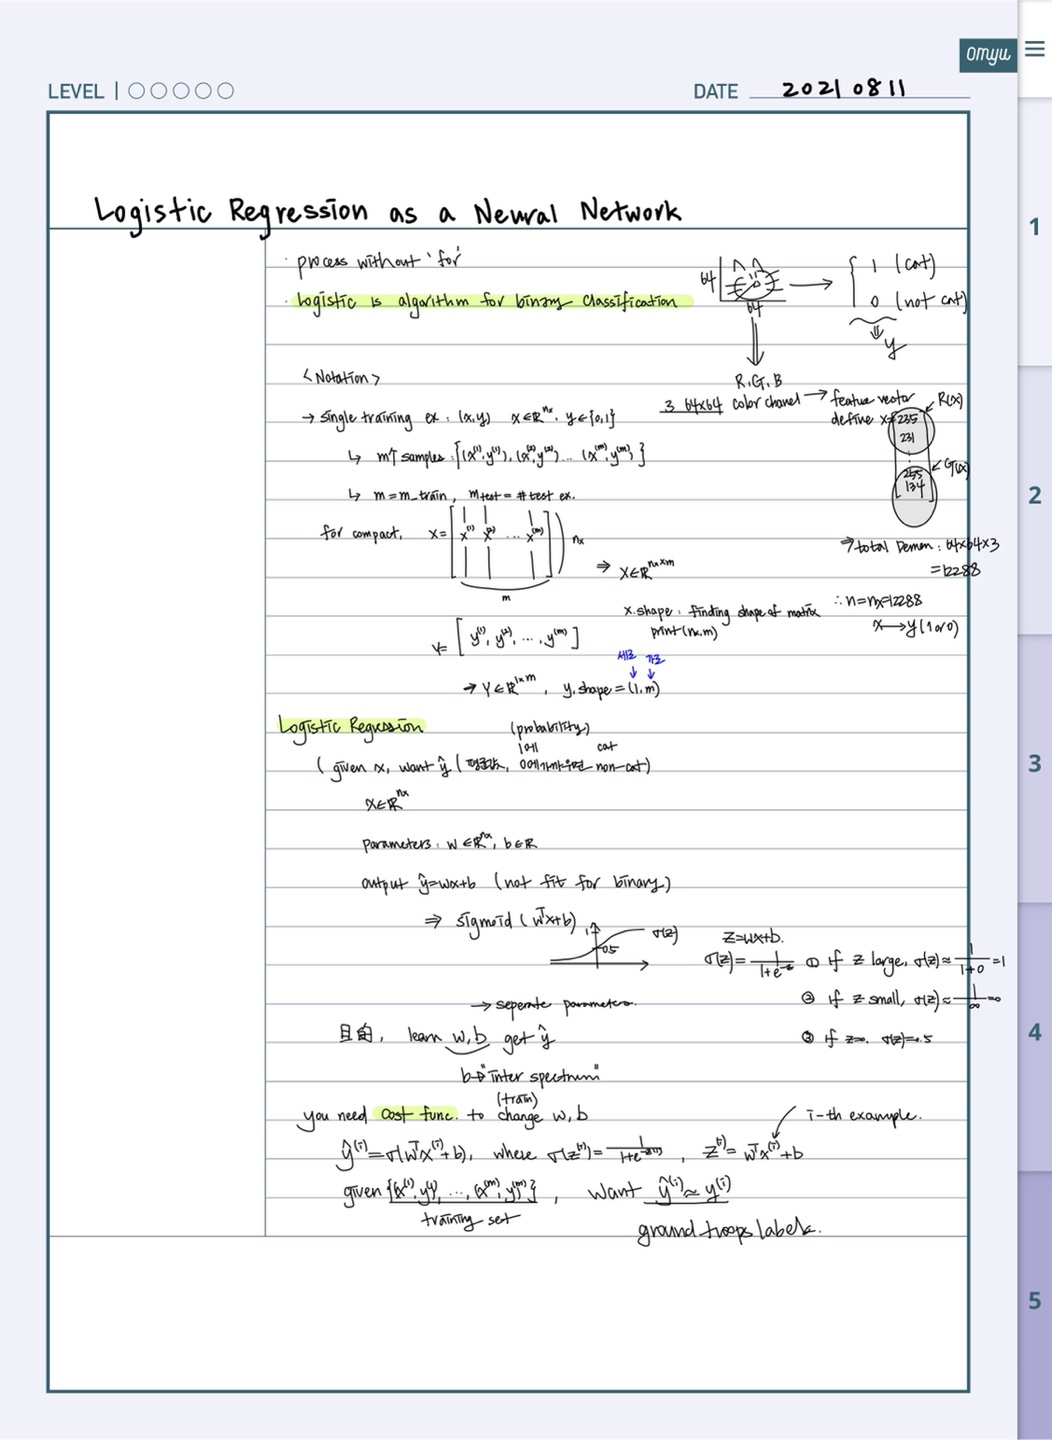 omyu
LEVEL
DATE 20210811
Logistic Regression as a Neural Network
· process without 'for'
· Logistic is algorithm for binary classification
64
64
1 (cat)
0 (not cat)
y
R.G.B
3 64x64 color chanel → feature vector
define x=
235
231
⋮
255
134
R(x)
G(x)
⇒ total Demen: 64x64x3
=12288
∴ n=nx=12288
x→y (1 or 0)
<Notation>
→ single training ex: (x,y) x∈ℝ^nx. y∈{0,1}
↳ m samples: {(x^(1),y^(1)), (x^(2),y^(2)) ... (x^(m),y^(m))}
↳ m=m_train, mtest = # test ex.
for compact, X= [x^(1) x^(2) ... x^(m)] nx
m
⇒ X∈ℝ^nx×m
x.shape: finding shape of matrix
print(nx.m)
Y= [y^(1), y^(2), ..., y^(m)]
세로 가로
→ Y∈ℝ^1×m, y.shape=(1,m)
Logistic Regression
(probability)
1에 cat
(given x, want ŷ ( 0에가까우면 non-cat)
X∈ℝ^nx
parameters: w∈ℝ^nx, b∈ℝ
output ŷ=wx+b (not fit for binary)
⇒ sigmoid (w^Tx+b)
1
0.5
σ(z)
z=wx+b.
σ(z)= 1/(1+e^-z) ① if z large, σ(z)≈ 1/(1+0) =1
② if z small, σ(z)≈ 1/∞ =0
③ if z=0. σ(z)=0.5
→ seperate parameters.
目的, learn w,b get ŷ
b→"inter spectrum"
(train)
you need cost func. to change w, b
i-th example.
ŷ^(i)=σ(w^Tx^(i)+b), where σ(z^(i))= 1/(1+e^-z(i)), z^(i)= w^Tx^(i)+b
given {(x^(1),y^(1)), ..., (x^(m),y^(m))}, want ŷ^(i)≈y^(i)
training set
ground troops labels.
1
2
3
4
5